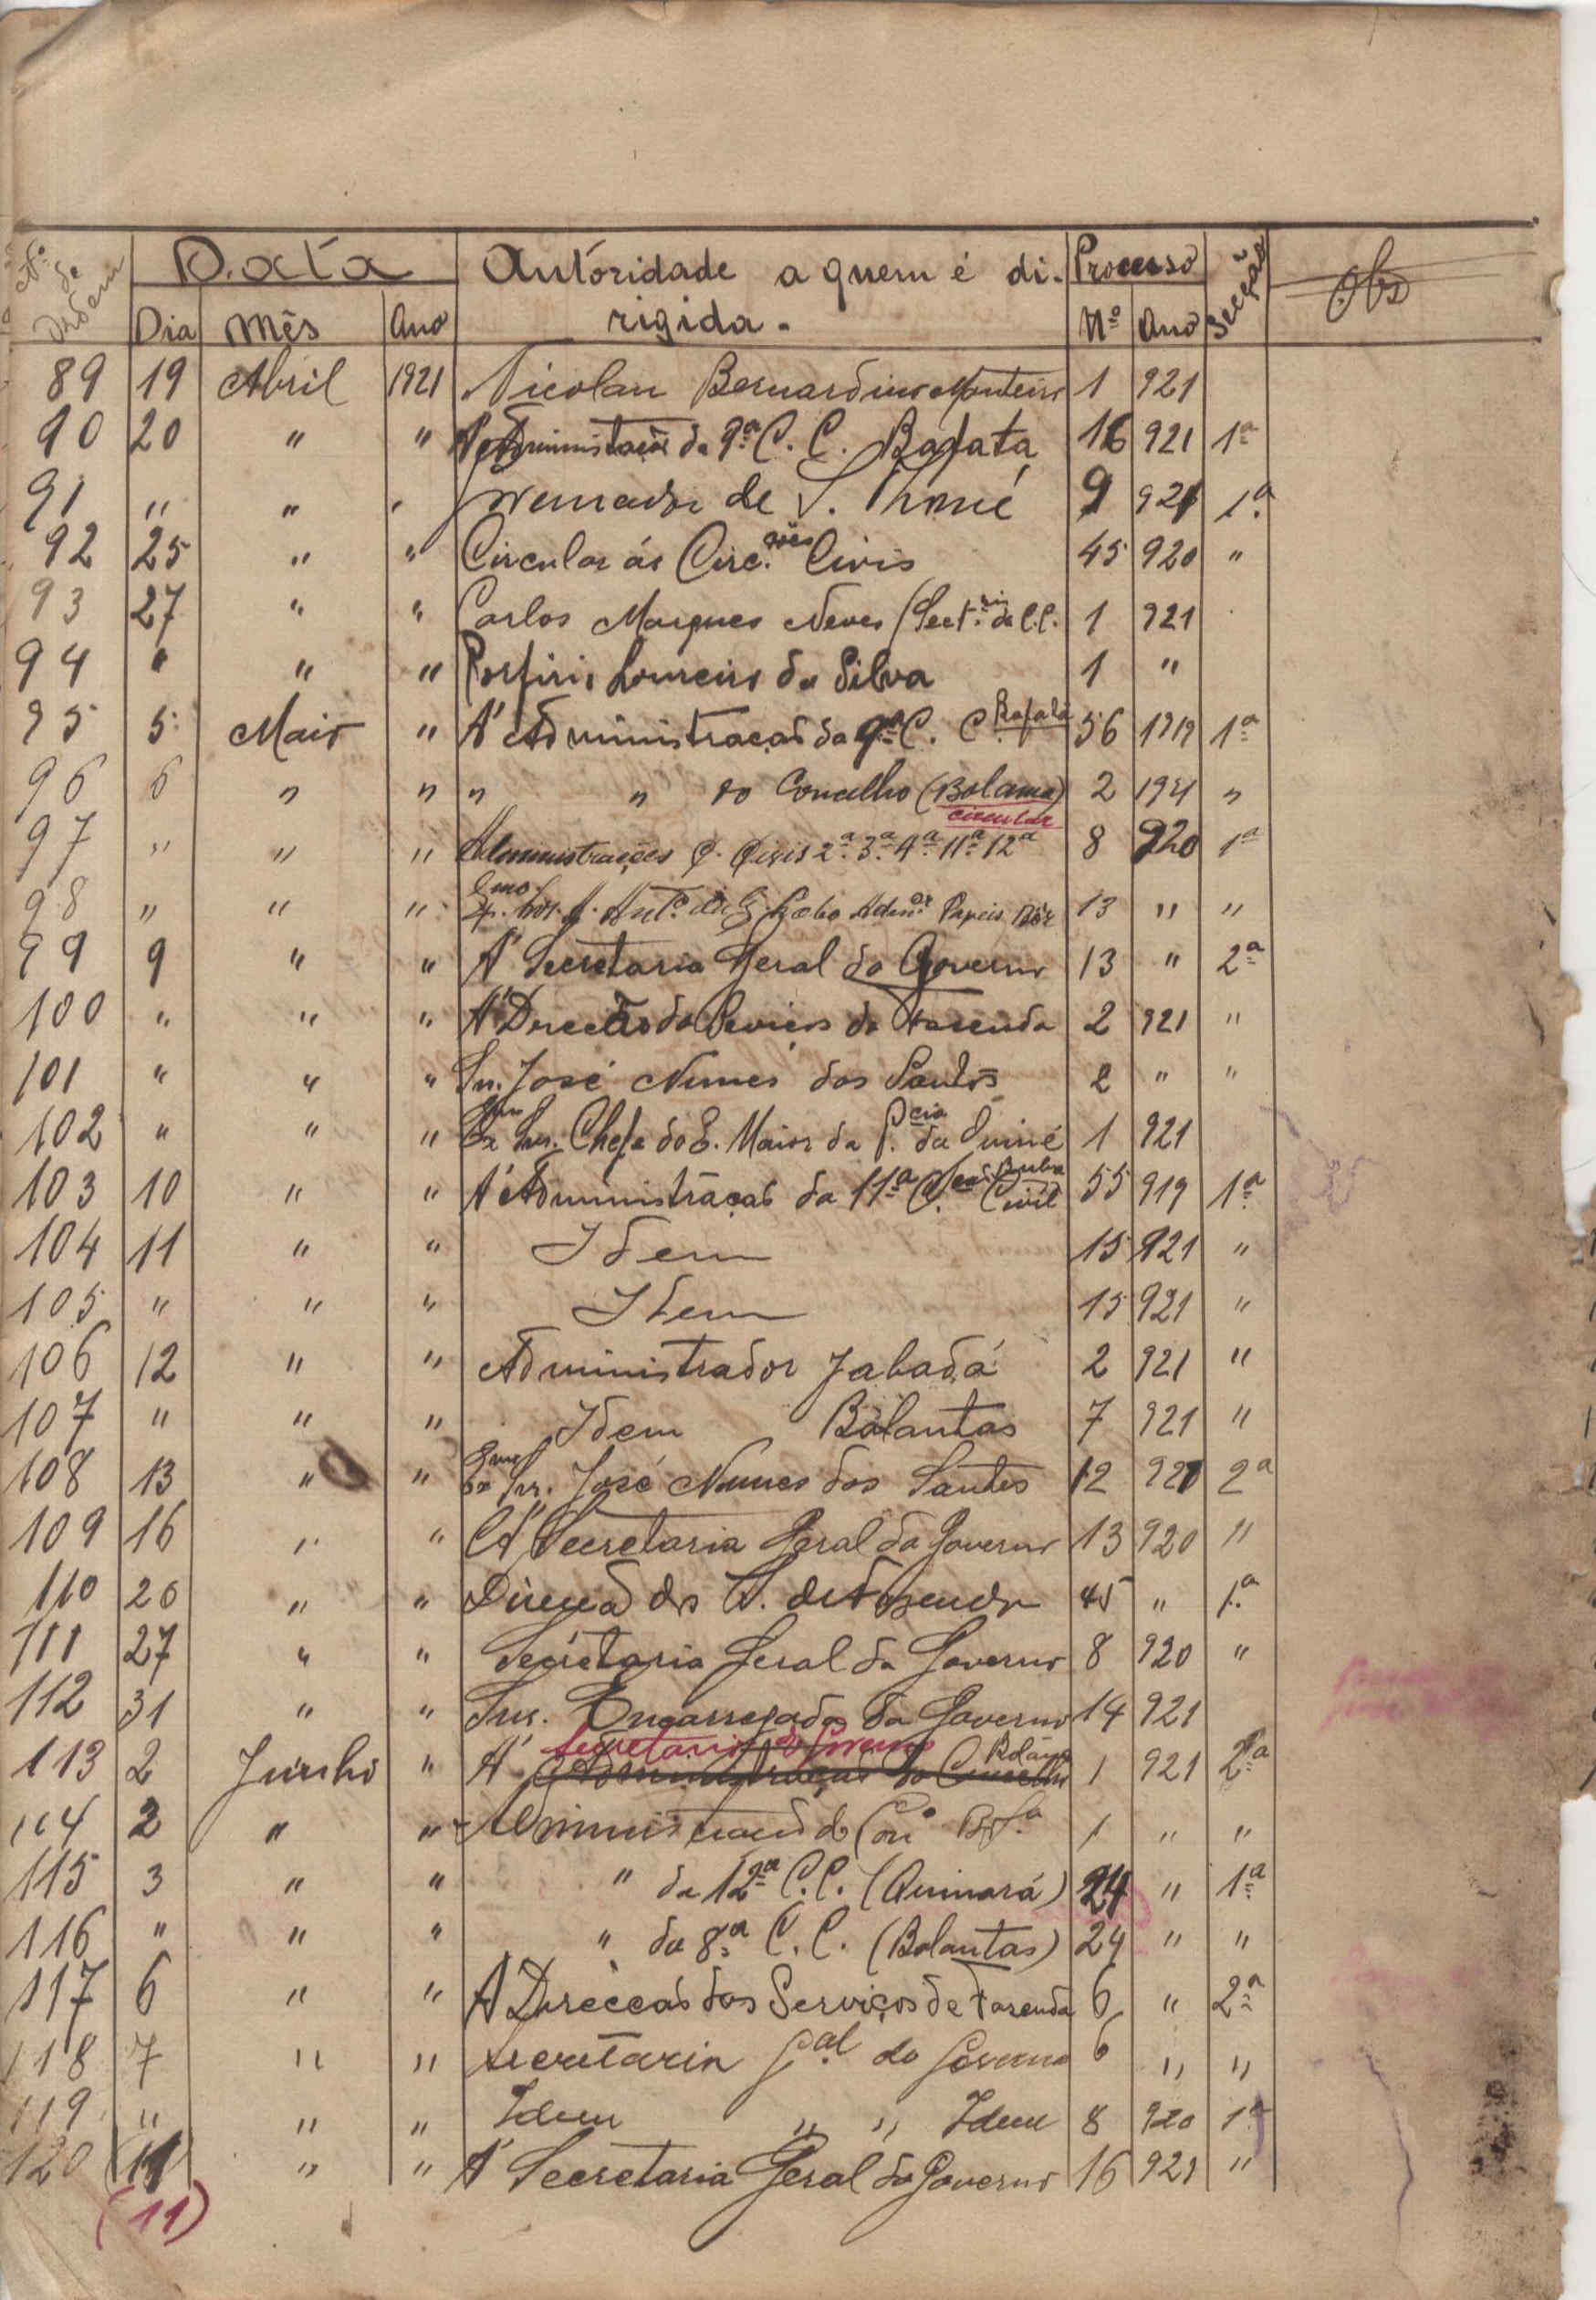 Nº de Ordem Data Autoridade a quem é di- Processo Secção Obs
Dia Mês Ano rigida. Nº Ano
89 19 Abril 1921 Nicolau Bernardino Monteiro 1 921
90 20 " " Administração da 9ª C. C. Bafata 16 921 1ª
91 " " " Governador de S. Thomé 9 921 1.ª
92 25 " " Circular ás Circ.ções Civis 45 920 "
93 27 " " Carlos Marques Neves (Sect.rio da C.C. 1 921
94 " " " Porfirio Loureiro da Silva 1 "
95 5 Maio " A' Administração da 9ª C. C. Bafatá 56 1919 1ª
96 6 " " " " do Concelho (Bolama) 2 1921 "
circular
97 " " " Administrações C. Civis 2ª 3ª 4ª 11ª 12ª 8 920 1ª
98 " " " 13 " "
99 9 " " A' Secretaria Geral do Governo 13 " 2ª
100 " " " A' Direcção do Serviços de Fazenda 2 921 "
101 " " " Sr. José Nunes dos Santos 2 " "
102 " " " Exmo Snr. Chefe do E. Maior da P.cia da Guiné 1 921
103 10 " " A' Administração da 11ª C.cão Civil Buba 55 919 1ª
104 11 " " Idem 15 921 "
105 " " " Idem 15 921 "
106 12 " " Administrador Jabadá 2 921 "
107 " " " Idem Balantas 7 921 "
108 13 " " Exmo Snr. José Nunes dos Santos 12 921 2ª
109 16 " " A' Secretaria Geral do Governo 13 920 "
110 20 " " Direcção dos S. de Fazenda 45 " 1.ª
111 27 " " Secretaria Geral do Governo 8 920 "
112 31 " " Snr. Encarregado do Governo 14 921
Secretaria do Governo
113 2 Junho " A' Administração do Concelho Bolama 1 921 2ª
114 2 " " Administração do Con.º 1 " "
115 3 " " " da 12ª C.C. (Quinará) 24 " 1ª
116 " " " " da 8ª C. C. (Balantas) 24 " "
117 6 " " A' Direcção dos Serviços de Fazenda 6 " 2ª
118 7 " " Secretaria G.al do Governo 6 " "
119 " " " Idem " " Idem 8 920 1ª
120 11 " " A' Secretaria Geral do Governo 16 921 "
(11)